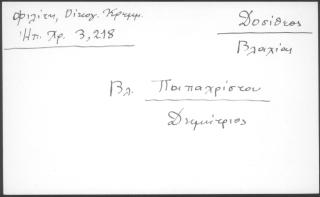 Φιλίτη, Οίκογ. Κρημμ.
Ἠπ. Χρ. 3,218
Δοσίθεος
Βλαχίας
Βλ. Παπαχρίστου
Δημήτριος